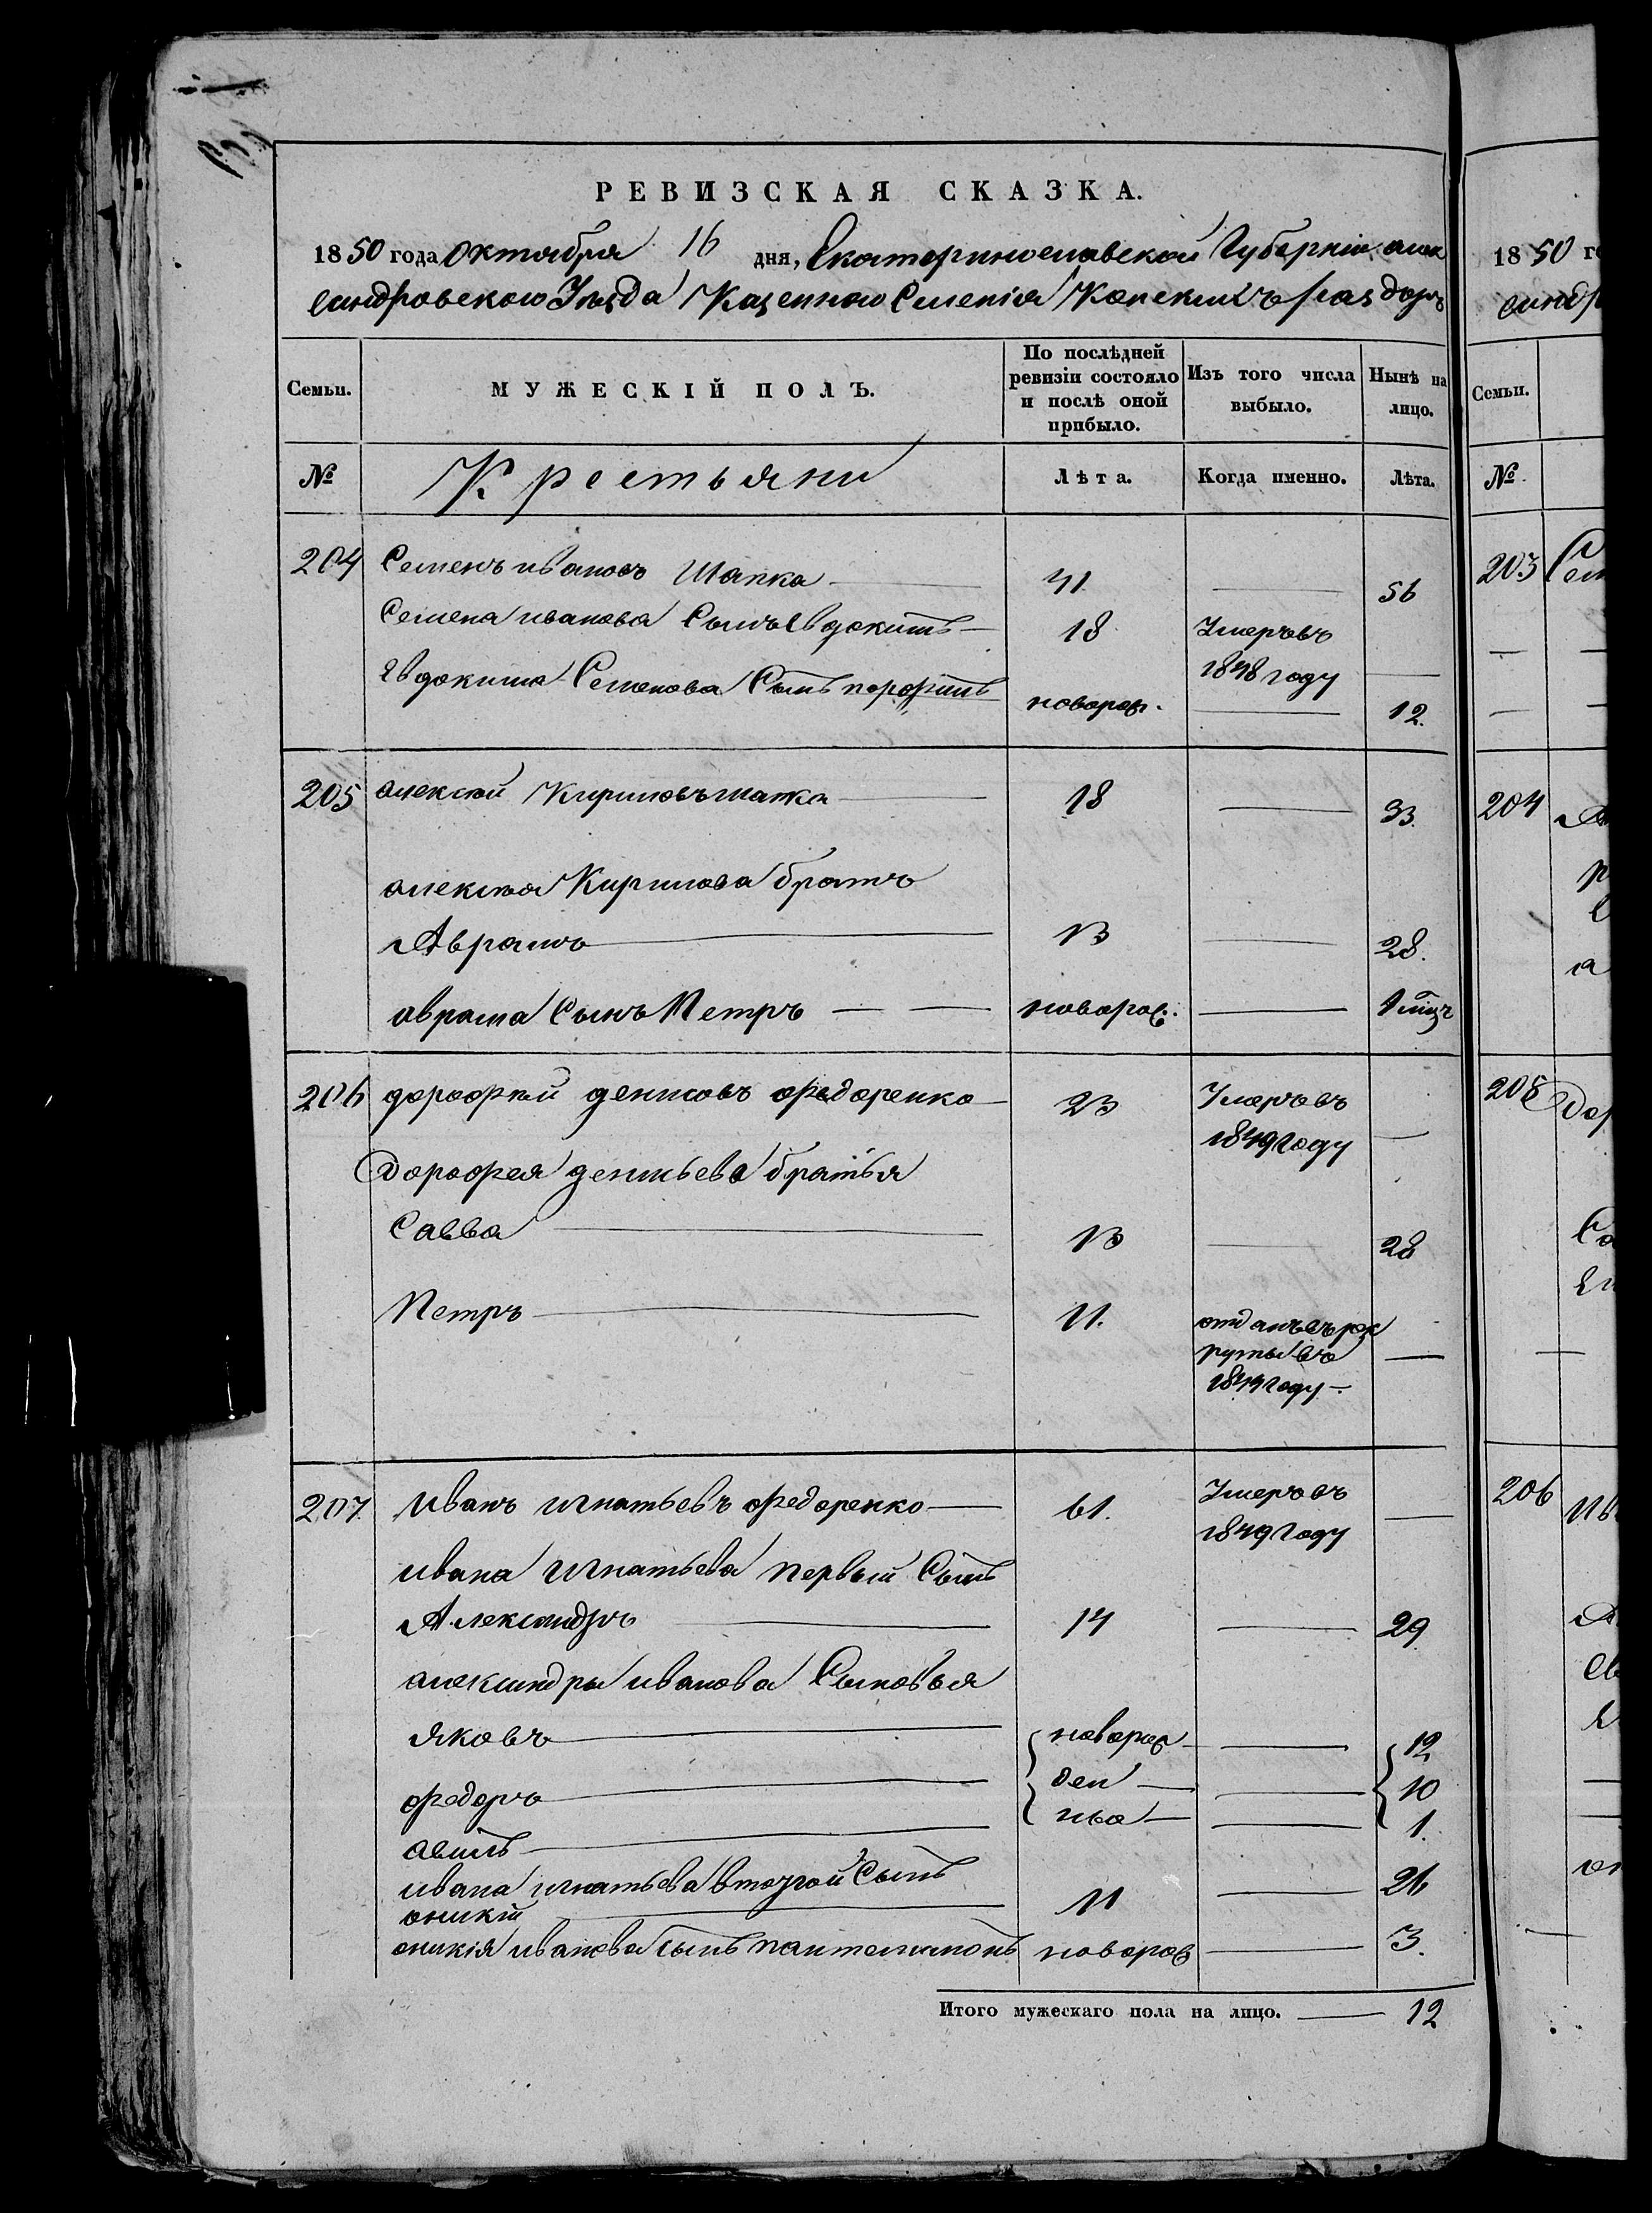 РЕВИЗСКАЯ СКАЗКА.
1850 года октября 16 дня, Екатеринославской Губерніи алек
сандровского Уѣзда Казенного Селенія Конскихъ раздоръ
Семьи.
МУЖЕСКІЙ ПОЛЪ.
По послѣдней ревизіи состояло и послѣ оной прибыло.
Изъ того числа выбыло.
Нынѣ на лицо.
№ Крестьяни Лѣта. Когда именно. Лѣта.
204 Семенъ ивановъ Шапка 41 — 56
Семена иванова Сынъ Евдокимъ 18 Умеръ въ
1848 году —
Евдокима Семенова Сынъ порфиръ новорож. — 12.
205 алексѣй Кириловъ шапка 18 — 33.
алексѣя Кирилова братъ
Аврамъ 13 — 28.
аврама Сынъ Петръ новорож. — 1 мѣц
206 дорофѣй денисовъ федоренко 23 Умеръ въ
1849 году —
Дорофея денисьева братья
Савва 13 — 28
Петръ 11. отданъ въ рек
руты въ —
году
207. Иванъ игнатьевъ федоренко 61. Умеръ въ
1849 году —
ивана игнатьева первый Сынъ
Александръ 14 — 29
александры иванова Сыновья
Яковъ новорож — 12
федоръ ден — 10
ные — 1.
ивана игнатьева второй Сынъ
оникій 11 — 26
оникія иванова сынъ пантелимонъ новорож — 3.
Итого мужескаго пола на лицо. — 12
1850 го
сандр
Семьи.
№
203 Сем
204
205 Дор
206 Ив